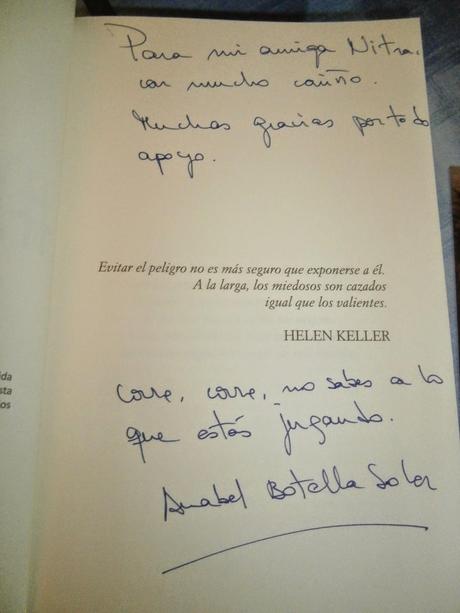 Para mi amiga Nitra,
con mucho cariño.
Muchas gracias por todo
apoyo.
Evitar el peligro no es más seguro que exponerse a él.
A la larga, los miedosos son cazados
igual que los valientes.
HELEN KELLER
ida
sta
os
Corre, corre, no sabes a lo
que estás jugando.
Anabel Botella Soler